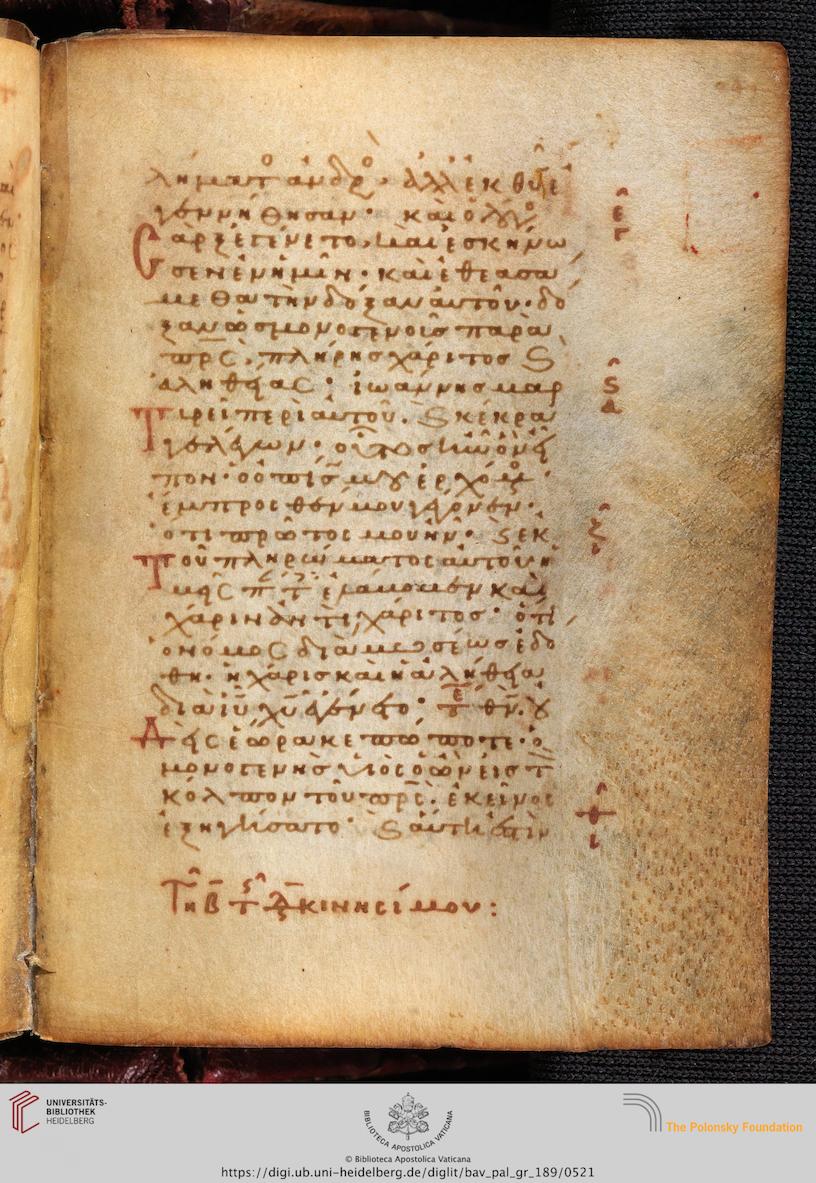 λήματ ἀνδρ. ἀλλ ἐκ θυ ἐ
γεννήθησαν. καὶ ὁ λγο
σαρξ ἐγένετο, καὶ ἐσκήνω
σεν ἐν ἡμῖν. καὶ ἐθεασα
μεθα τὴν δόξαν αὐτοῦ. δό
ξαν ὡς μονογενοῦς παρὰ
πρς, πλήρης χάριτος ϛ
ἀληθείας. ἰωάννης μαρ
τυρεῖ περὶ αὐτοῦ. ϛ κέκρα
γε λέγων. οὗτος ἦν ὃν εἶ
πον. ὁ ὀπίσ μου ἐρχόμ
ἔμπροσθέν μου γέγονεν.
ὅτι πρῶτός μου ἦν. ϛ ἐκ
τοῦ πληρώματος αὐτοῦ ἡ
μεῖς π τ ἐλάβομεν καὶ
χάριν ἀντὶ χάριτος. ὅτι
ὁ νόμος διὰ μωσέως ἐδό
θη. ἡ χάρις καὶ ἡ ἀλήθεια
διὰ ιυ χυ ἐγένετο. τ ε θν. ου
δεὶς ἑώρακε πώποτε. ὁ
μονογενὴς υἱὸς ὁ ὢν εἰς τ
κόλπον τοῦ πρς. ἐκεῖνος
ἐξηγήσατο. ϛ αὕτη ἐστὶν
Τη β τ ϛ διακινησίμου:
UNIVERSITÄTS-
BIBLIOTHEK
HEIDELBERG
BIBLIOTECA APOSTOLICA VATICANA
The Polonsky Foundation
© Biblioteca Apostolica Vaticana
https://digi.ub.uni-heidelberg.de/diglit/bav_pal_gr_189/0521